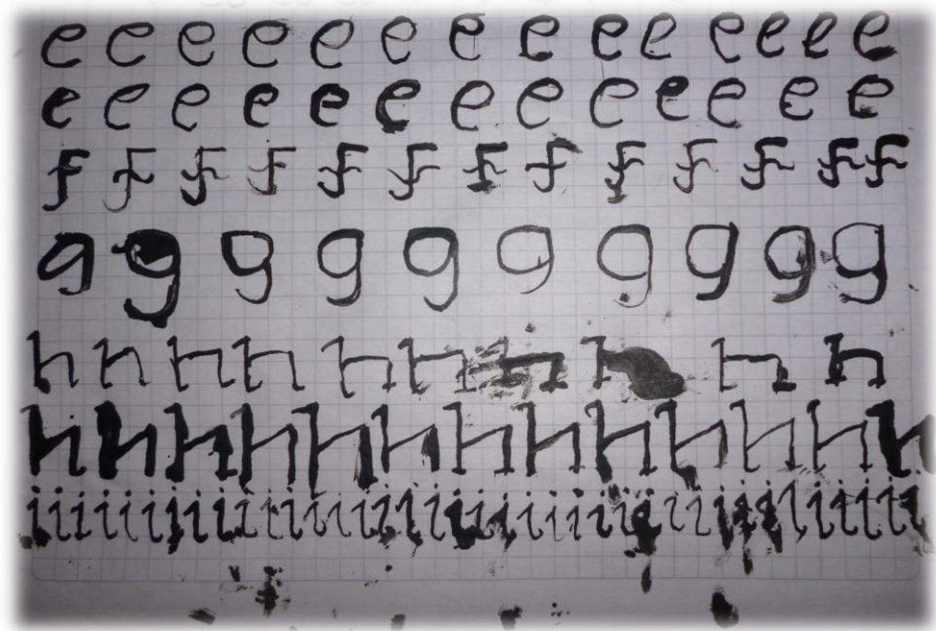 e e e e e e e e e e e e e e
e e e e e e e e e e e e e
f f f f f f f f f f f f f
g g g g g g g g g g
h h h h h h h h h
h h h h h h h h h h h h h
i i i i i i i i i i i i i i i i i i i i i i i i i i i i i i i i i i i i i i